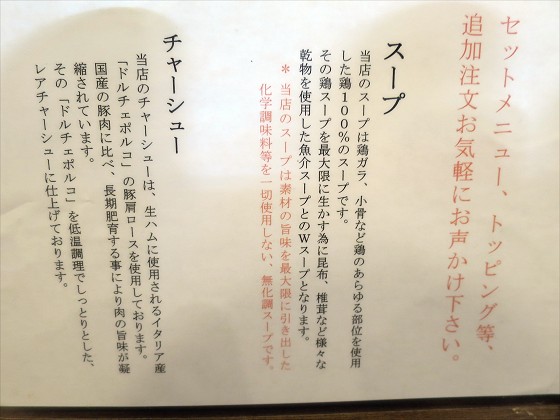 セットメニュー、トッピング等、
追加注文お気軽にお声かけ下さい。
スープ
当店のスープは鶏ガラ、小骨など鶏のあらゆる部位を使用
した鶏100%のスープです。
その鶏スープを最大限に生かす為に昆布、椎茸など様々な
乾物を使用した魚介スープとのWスープとなります。
＊当店のスープは素材の旨味を最大限に引き出した
化学調味料等を一切使用しない、無化調スープです。
チャーシュー
当店のチャーシューは、生ハムに使用されるイタリア産
「ドルチェポルコ」の豚肩ロースを使用しております。
国産の豚肉に比べ、長期肥育する事により肉の旨味が凝
縮されています。
その「ドルチェポルコ」を低温調理でしっとりとした、
レアチャーシューに仕上げております。